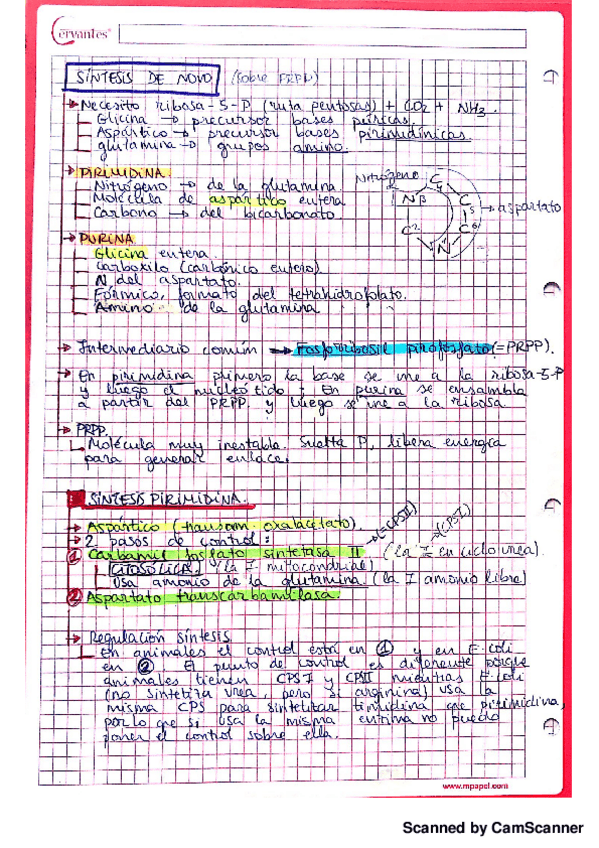 Cervantes
SÍNTESIS DE NOVO (sobre PRPP)
→ Necesito ribosa-5-P (ruta pentosas) + CO2 + NH3.
Glicina → precursor bases púricas.
Aspártico → precursor bases pirimidínicas.
glutamina → grupos amino.
→ PIRIMIDINA.
Nitrógeno → de la glutamina.
Molécula de aspártico entera.
Carbono → del bicarbonato.
Nitrógeno
C4
N3
C5 → aspartato
C2
C6
N
→ PURINA
Glicina entera
Carboxilo (carbónico entero)
N del aspartato.
Fórmico, formato del tetrahidrofolato.
Amino de la glutamina
→ Intermediario común → Fosforribosil pirofosfato (=PRPP).
→ En pirimidina primero la base se une a la ribosa-5-P
y luego el nucleótido; En purina se ensambla
a partir del PRPP. y luego se une a la ribosa
→ PRPP.
Molécula muy inestable. Suelta P, libera energía
para generar enlace.
SÍNTESIS PIRIMIDINA.
→ Aspártico (transam. oxalacetato).
→ 2 pasos de control:
① Carbamil fosfato sintetasa II (la I en ciclo urea).
(=CPSII)
(CPSI)
CITOSÓLICA (la I mitocondrial)
Usa amonio de la glutamina (la I amonio libre)
② Aspartato transcarbamilasa.
→ Regulación síntesis
En animales el control está en ① y en E. coli
en ②. El punto de control es diferente porque
animales tienen CPSI y CPSII mientras E. coli
(no sintetiza urea, pero sí arginina) usa la
misma CPS para sintetizar que pirimidina,
por lo que si usa la misma enzima no puedo
poner el control sobre ella.
www.mpapel.com
Scanned by CamScanner